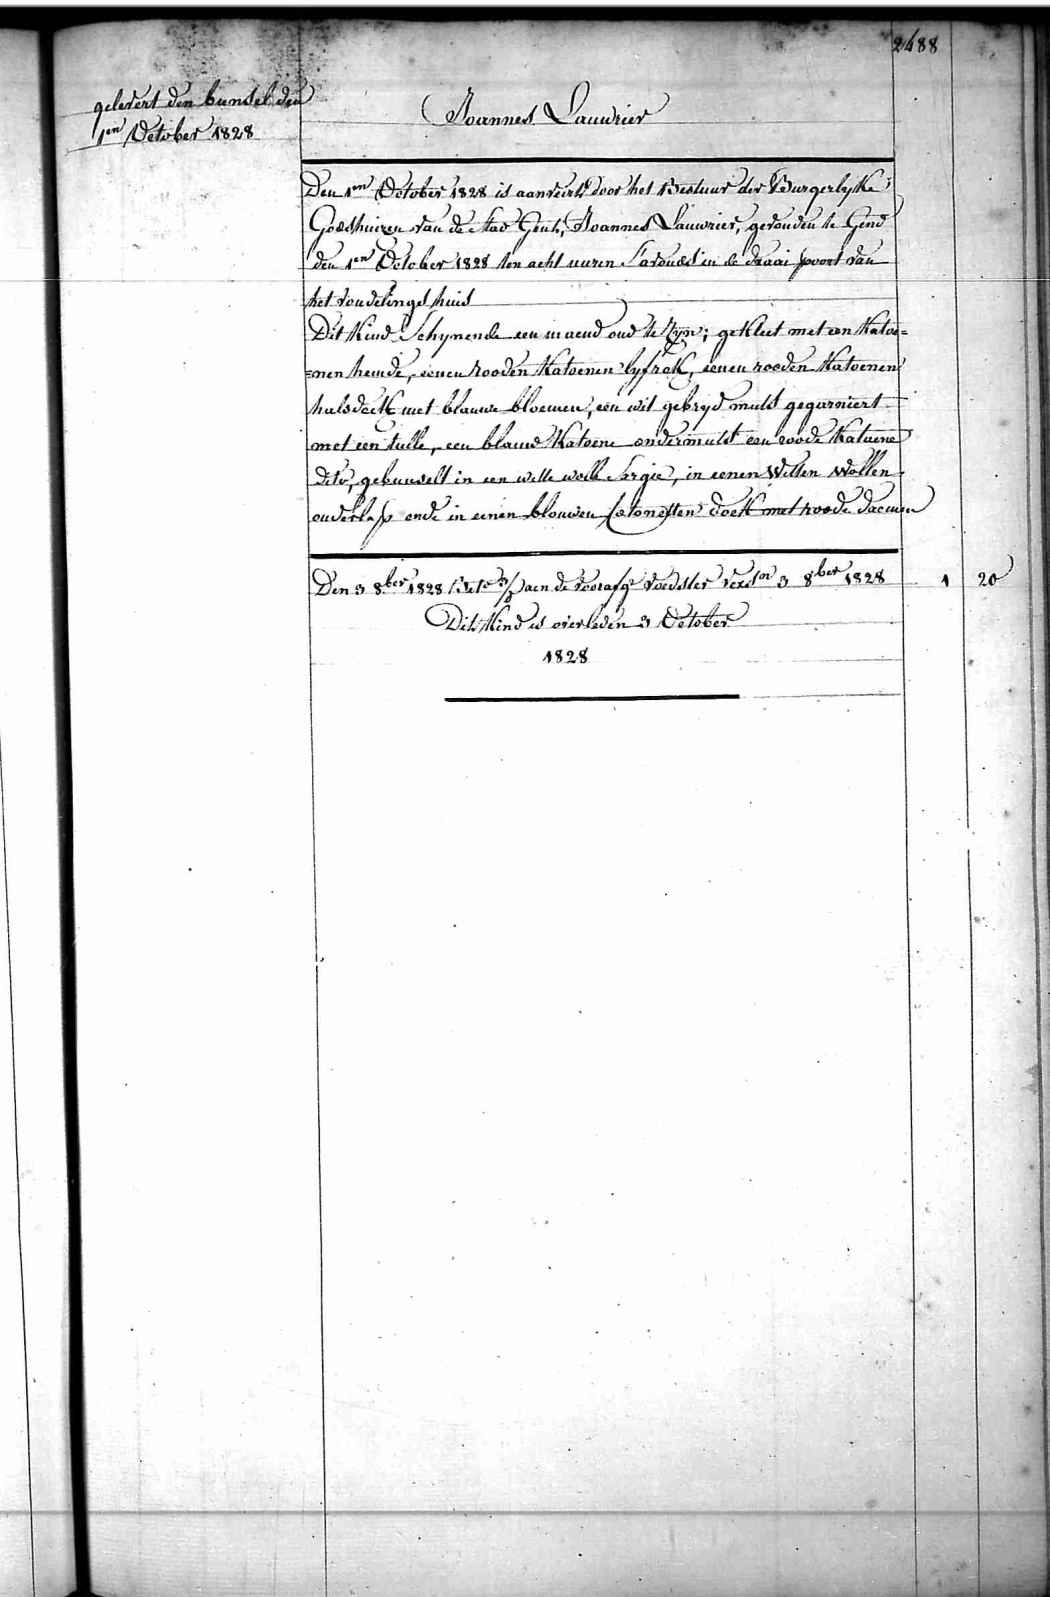 2488
gelevert den bunsel den
1en October 1828
Joannes Lauwrier
Den 1en October 1828 is aanveird door het Bestuur der Burgerlyke
Godshuizen van de Stad Gent, Joannes Lauwrier, gevonden te Gend
den 1en October 1828 ten acht uuren s'avonds in de draai poort van
het vondelings huis
Dit Kind Schynende een maend oud te Zyn; gekleet met een Katoe=
=nen hemde, eenen rooden Katoenen lyfrok, eenen rooden Katoenen
halsdoek met blauwe bloemen, een wit gebryd muts gegarniert
met een tulle, een blauw Katoene ondermuts een roode Katoene
dito, gebunselt in een witte wolle Sargie, in eenen Witten Wollen
onderlap ende in eenen blouwen Cotonetten doek met roode
Den 3 8ber 1828 aen de voedster 3 8ber 1828 1 20
Dit Kind is overleden 3 October
1828